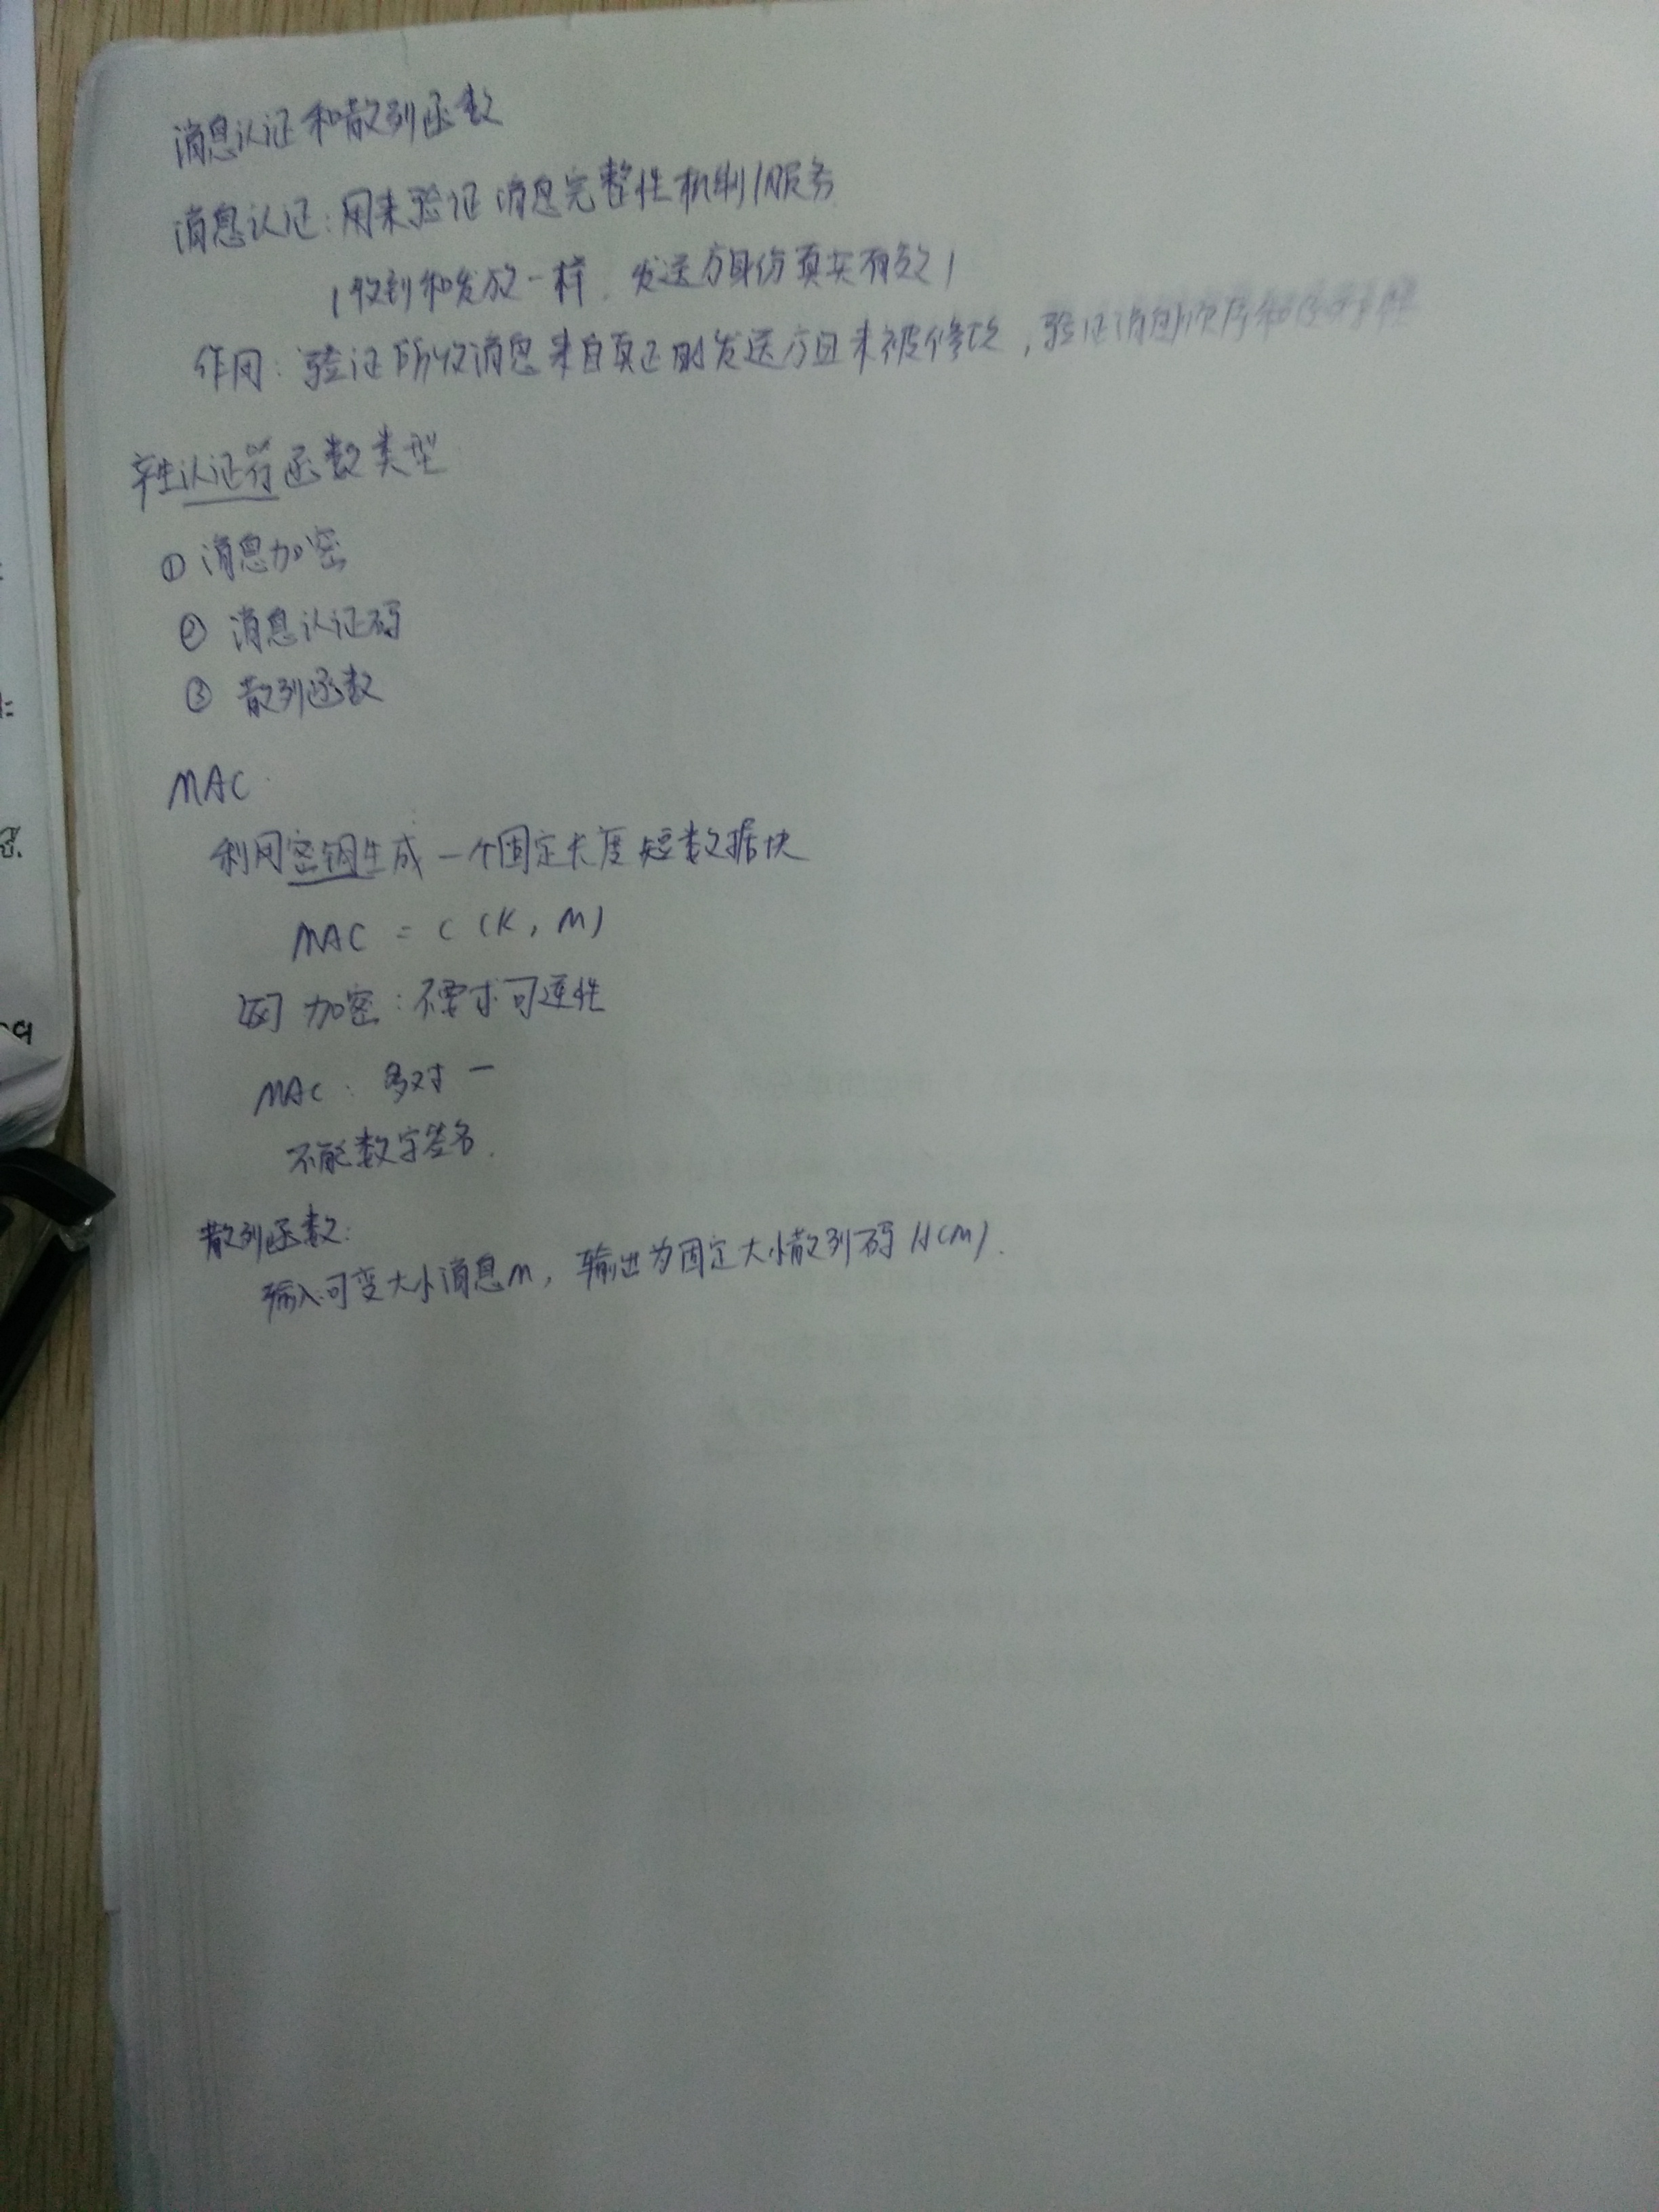 消息认证和散列函数
消息认证:用来验证消息完整性机制/服务
(收到和发放一样. 发送方身份真实有效)
作用:验证所收消息来自真正的发送方且未被修改,验证消息顺序和
产生认证符函数类型
① 消息加密
② 消息认证码
③ 散列函数
MAC
利用密钥生成一个固定长度短数据块
MAC = C (K, M)
加密:不要求可逆性
MAC: 多对一
不能数字签名.
散列函数:
输入可变大小消息M, 输出为固定大小散列码 H(M).